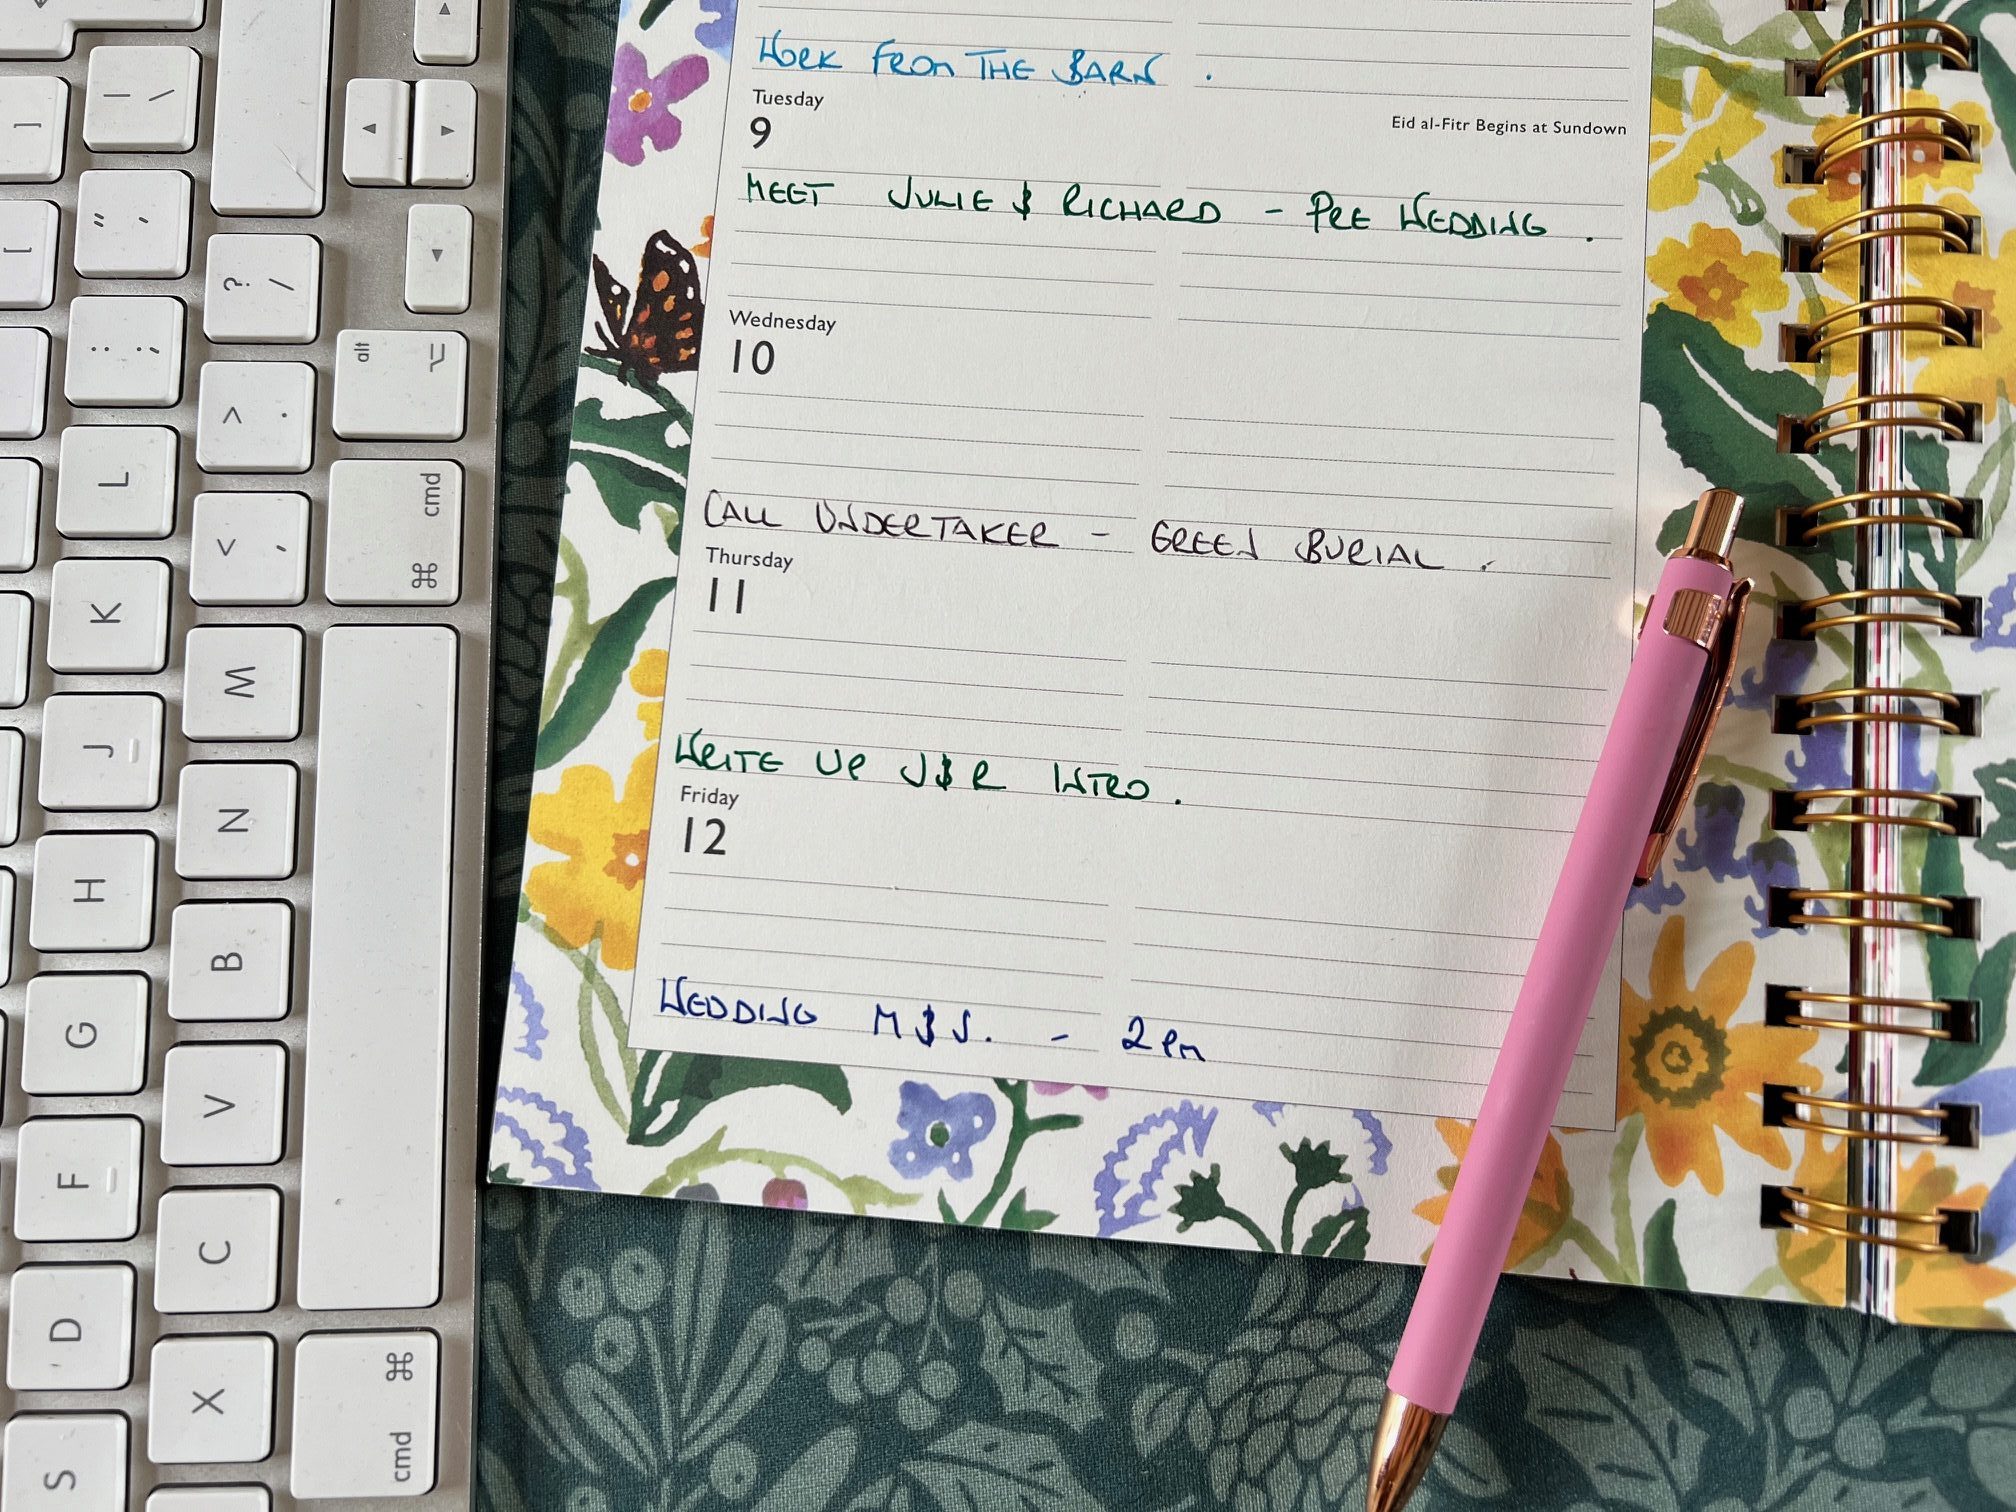 WORK FROM THE BARN .
Tuesday
9
Eid al-Fitr Begins at Sundown
MEET JULIE & RICHARD - PRE WEDDING .
Wednesday
10
CALL UNDERTAKER - GREEN BURIAL .
Thursday
11
WRITE UP J&R INTRO .
Friday
12
WEDDING M&J. - 2pm
alt
cmd ⌘
⌘ cmd
? /
> .
< ,
M
N
B
V
C
X
| \
" '
: ;
L
K
J
H
G
F
D
S
]
[